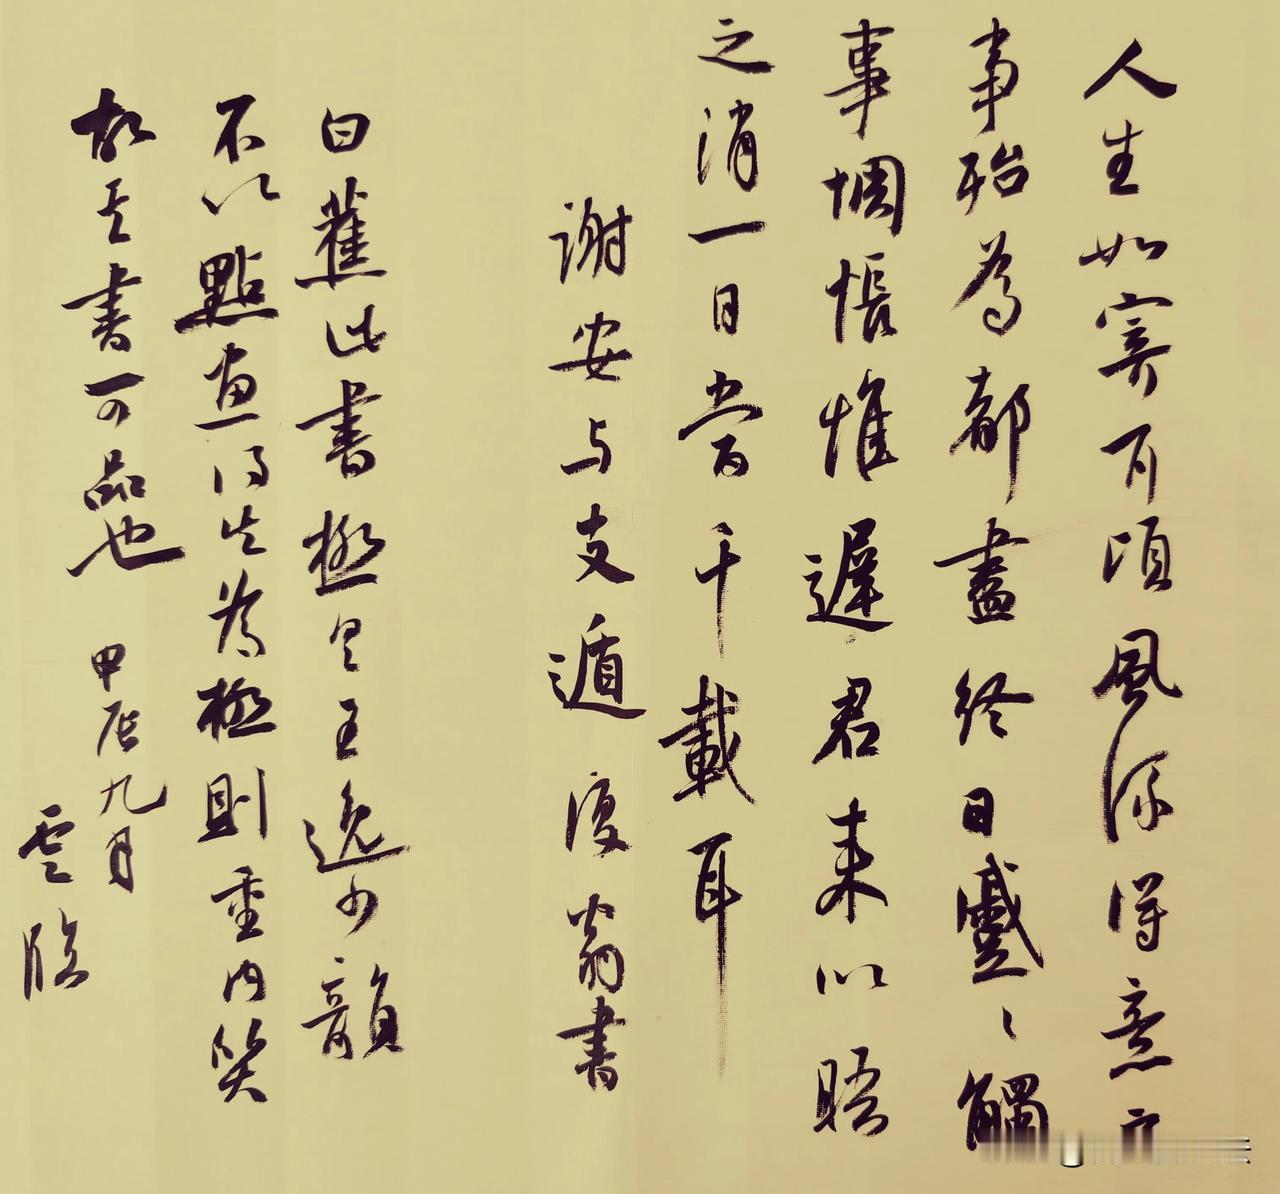 人生如寄耳頃風流得意之
事殆為都盡終日慼々觸
事惆悵惟遲君来以晤
之消一日當千載耳
謝安与支遁 復翁書
白蕉此書極具王逸少韻
不以點畫得失為極則重内美
故其書可品也 甲辰九月
雲臨